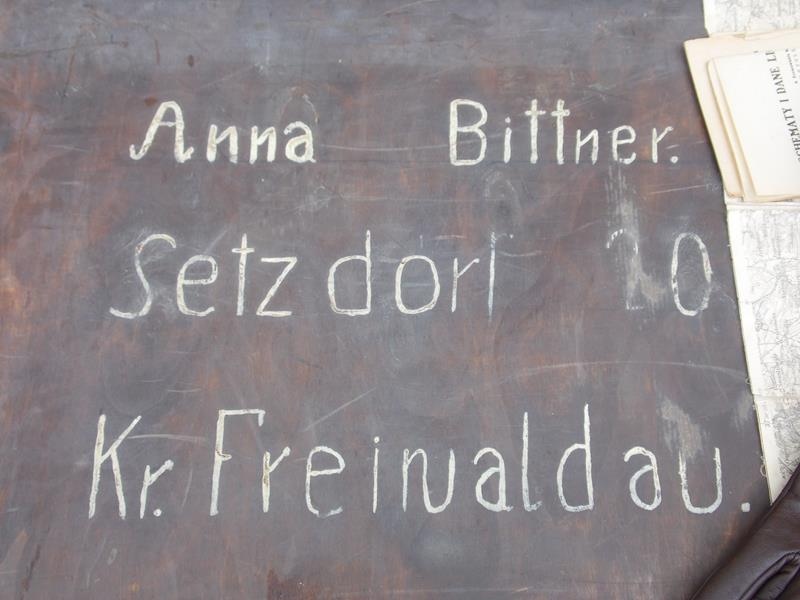 Anna Bittner.
Setzdorf 20
Kr. Freiwaldau.
SCHEMATY I DANE